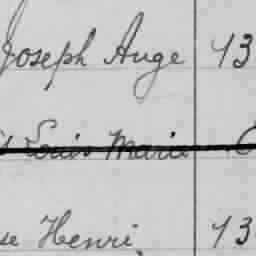 Joseph Auge 13
Louis Marie
se Henri 13